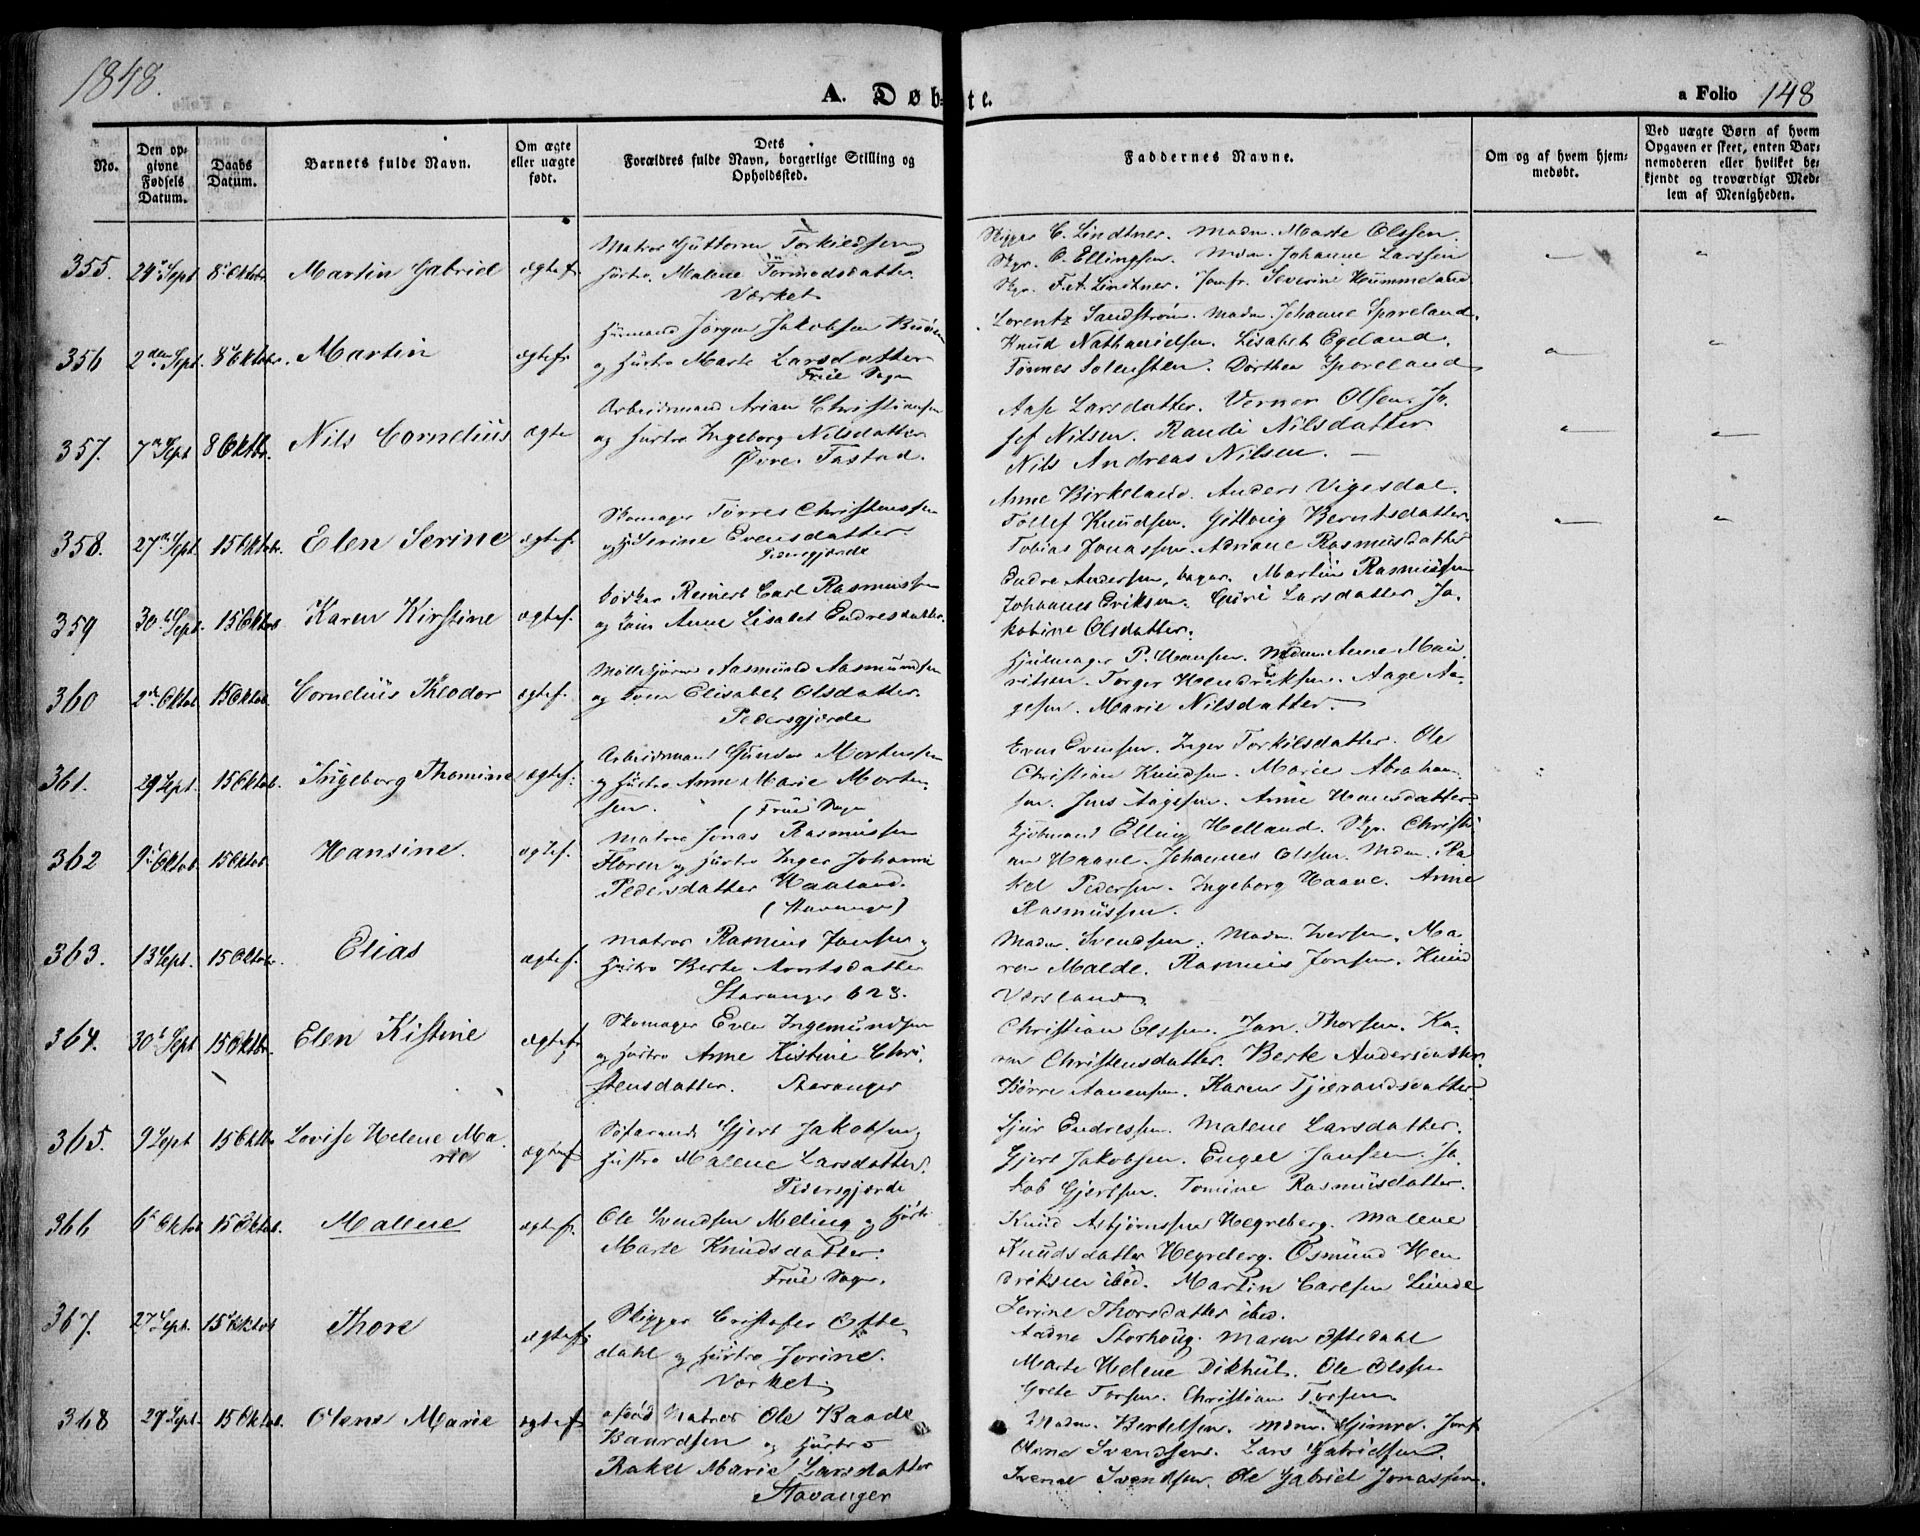 1848.
A. Døbte.
a Folio 148
No.
Den opgivne Fødsels Datum.
Daabs Datum.
Barnets fulde Navn.
Om ægte eller uægte født.
Dets Forældres fulde Navn, borgerlige Stilling og Opholdssted.
Faddernes Navne.
Om og af hvem hjemmedøbt.
Ved uægte Børn af hvem Opgaven er skeet, enten Barnemoderen eller hvilket bekjendt og troværdigt Medlem af Menigheden.
355. 24 Sept 8 Oktobr. Martin Gabriel ægtef.
Matros Guttorm Torkildsen
Hustro Malene Tormodsdatter
Værket
Skipper C. Lindtner. Madm. Marte Olssen.
Skpr. O. Ellingsen. Mdm. Johanne Larssen
Skpr. F.A. Lindtner. Jomfr. Severine Hummeland
356 2den Sept. 8 Oktobr. Martin ægtef.
Huusmand Jørgen Jakobsen
og Hustro Marte Larsdatter
Frue Sogn
Lorentz Sandstrøm. Madm. Johanne Sporeland.
Knud Nathanielsen. Lisabet Egeland.
Tønnes Solensten. Dorthea Sporeland
357. 7 Sept 8 Oktbr. Nils Cornelius ægte
Arbeidsmand Arian Christiansen
og Hustro Ingeborg Nilsdatter
Øvre Tastad.
Aase Larsdatter. Verner Olsen. Jo-
sef Nilsen. Randi Nilsdatter
Nils Andreas Nilsen.
358. 27 Sept 15 Oktobr. Elen Serine ægtef.
Skomager Tørres Christensen
og H. Serine Evensdatter.
Pedersgjerde
Anne Birkeland. Anders Vigesdal.
Tollef Knudsen. Gitlaug Berntsdatter.
Tobias Jonassen. Adriane Rasmusdatter
359 30 Sept. 15 Oktob. Karen Kirstine ægtef.
Reinert Carl Rasmussen
og Kone Anne Lisabet Endresdatter.
Endre Andersen, bager. Martin Rasmussen
Johannes Eriksen. Guri Larsdatter. Ja-
kobine Olsdatter.
360 2 Oktob 15 Oktob. Cornelius Theodor ægtef.
Aasmund Aasmundsen
og Kone Elisabet Olsdatter.
Pedersgjerde
Hjulmager P. Hansen. Mdm. Anne Mau-
ritsen. Torger Hendriksen. Aage Aa-
gesen. Marie Nilsdatter.
361. 29 Sept. 15 Oktob. Ingeborg Thomine ægtef.
Arbeidsmand Gunder Mortensen
og Hustro Anne Marie Morten-
sen. (Frue Sogn
Even Evensen. Inger Torkilsdatter. Ole
Christian Knudsen. Marie Abraham-
sen. Jens Aagesen. Anne Hansdatter
362 9 Oktob 15 Oktob. Hansine. ægtef.
Matros Jonas Rasmussen
Floren og Hustro Inger Johanne
Pedersdatter Haaland.
(Stavanger)
Elling Helland. Skpr. Christi-
an Haave. Johannes Olssen. Mdm. Ra-
kel Pedersen. Ingeborg Haave. Anne
Rasmussen.
363. 13 Sept. 15 Oktobr. Elias ægtef.
Matros Rasmus Jansen
Hustro Berte Arntsdatter
Stavanger 623.
Madm. Svendsen. Madm. Iversen. Ma-
ren Malde. Rasmus Jonsen. Knud
Versland
364. 30 Sept 15 Oktbr. Elen Kistine ægtef.
Skomager Even Ingemundsen
og Hustro Anne Kistine Chri-
stensdatter. Stavanger
Christian Olssen. Jan Thorsen. Ka-
ren Christensdatter. Berte Andersdatter.
Børre Aanensen. Karen Tjerandsdatter
365. 9 Sept 15 Oktbr Lovise Helene Ma-
rie ægtef
Søfarende Gjert Jakobsen
Hustro Malene Larsdatter.
Pedersgjerde
Sjur Endressen. Malene Larsdatter.
Gjert Jakobsen. Engel Jansen. Ja-
kob Gjertsen. Tomine Rasmusdatter.
366 6 Oktob 15 Oktob. Malene ægtef.
Ole Svendsen Melling og Hustr.
Marte Knudsdatter.
Frue Sogn.
Knud Asbjørnssen Hegreberg. Malene
Knudsdatter Hegreberg. Osmund Hen-
driksen ibid. Martin Carlsen Lunde
Serine Thorsdatter ibid.
367. 27 Sept. 15 Oktob Thore ægtef.
Skipper Cristofer Ofte-
dahl og Hustro Jorine.
Værket
Aadne Storhoug. Maren Oftedahl
Marte Helene Dikhut. Ole Olssen
Grete Torsen. Christian Torsen
368 29 Sept. 15 Oktob. Olene Marie ægtef
Matros Ole Baade
Baardsen og Hustro
Rakel Marie Larsdatter
Stavanger
Madm. Bertelsen. Mdm. Gimre. Jomf
Olene Svendsen. Lars Gabrielsen.
Svend Svendsen. Ole Gabriel Jonassen.